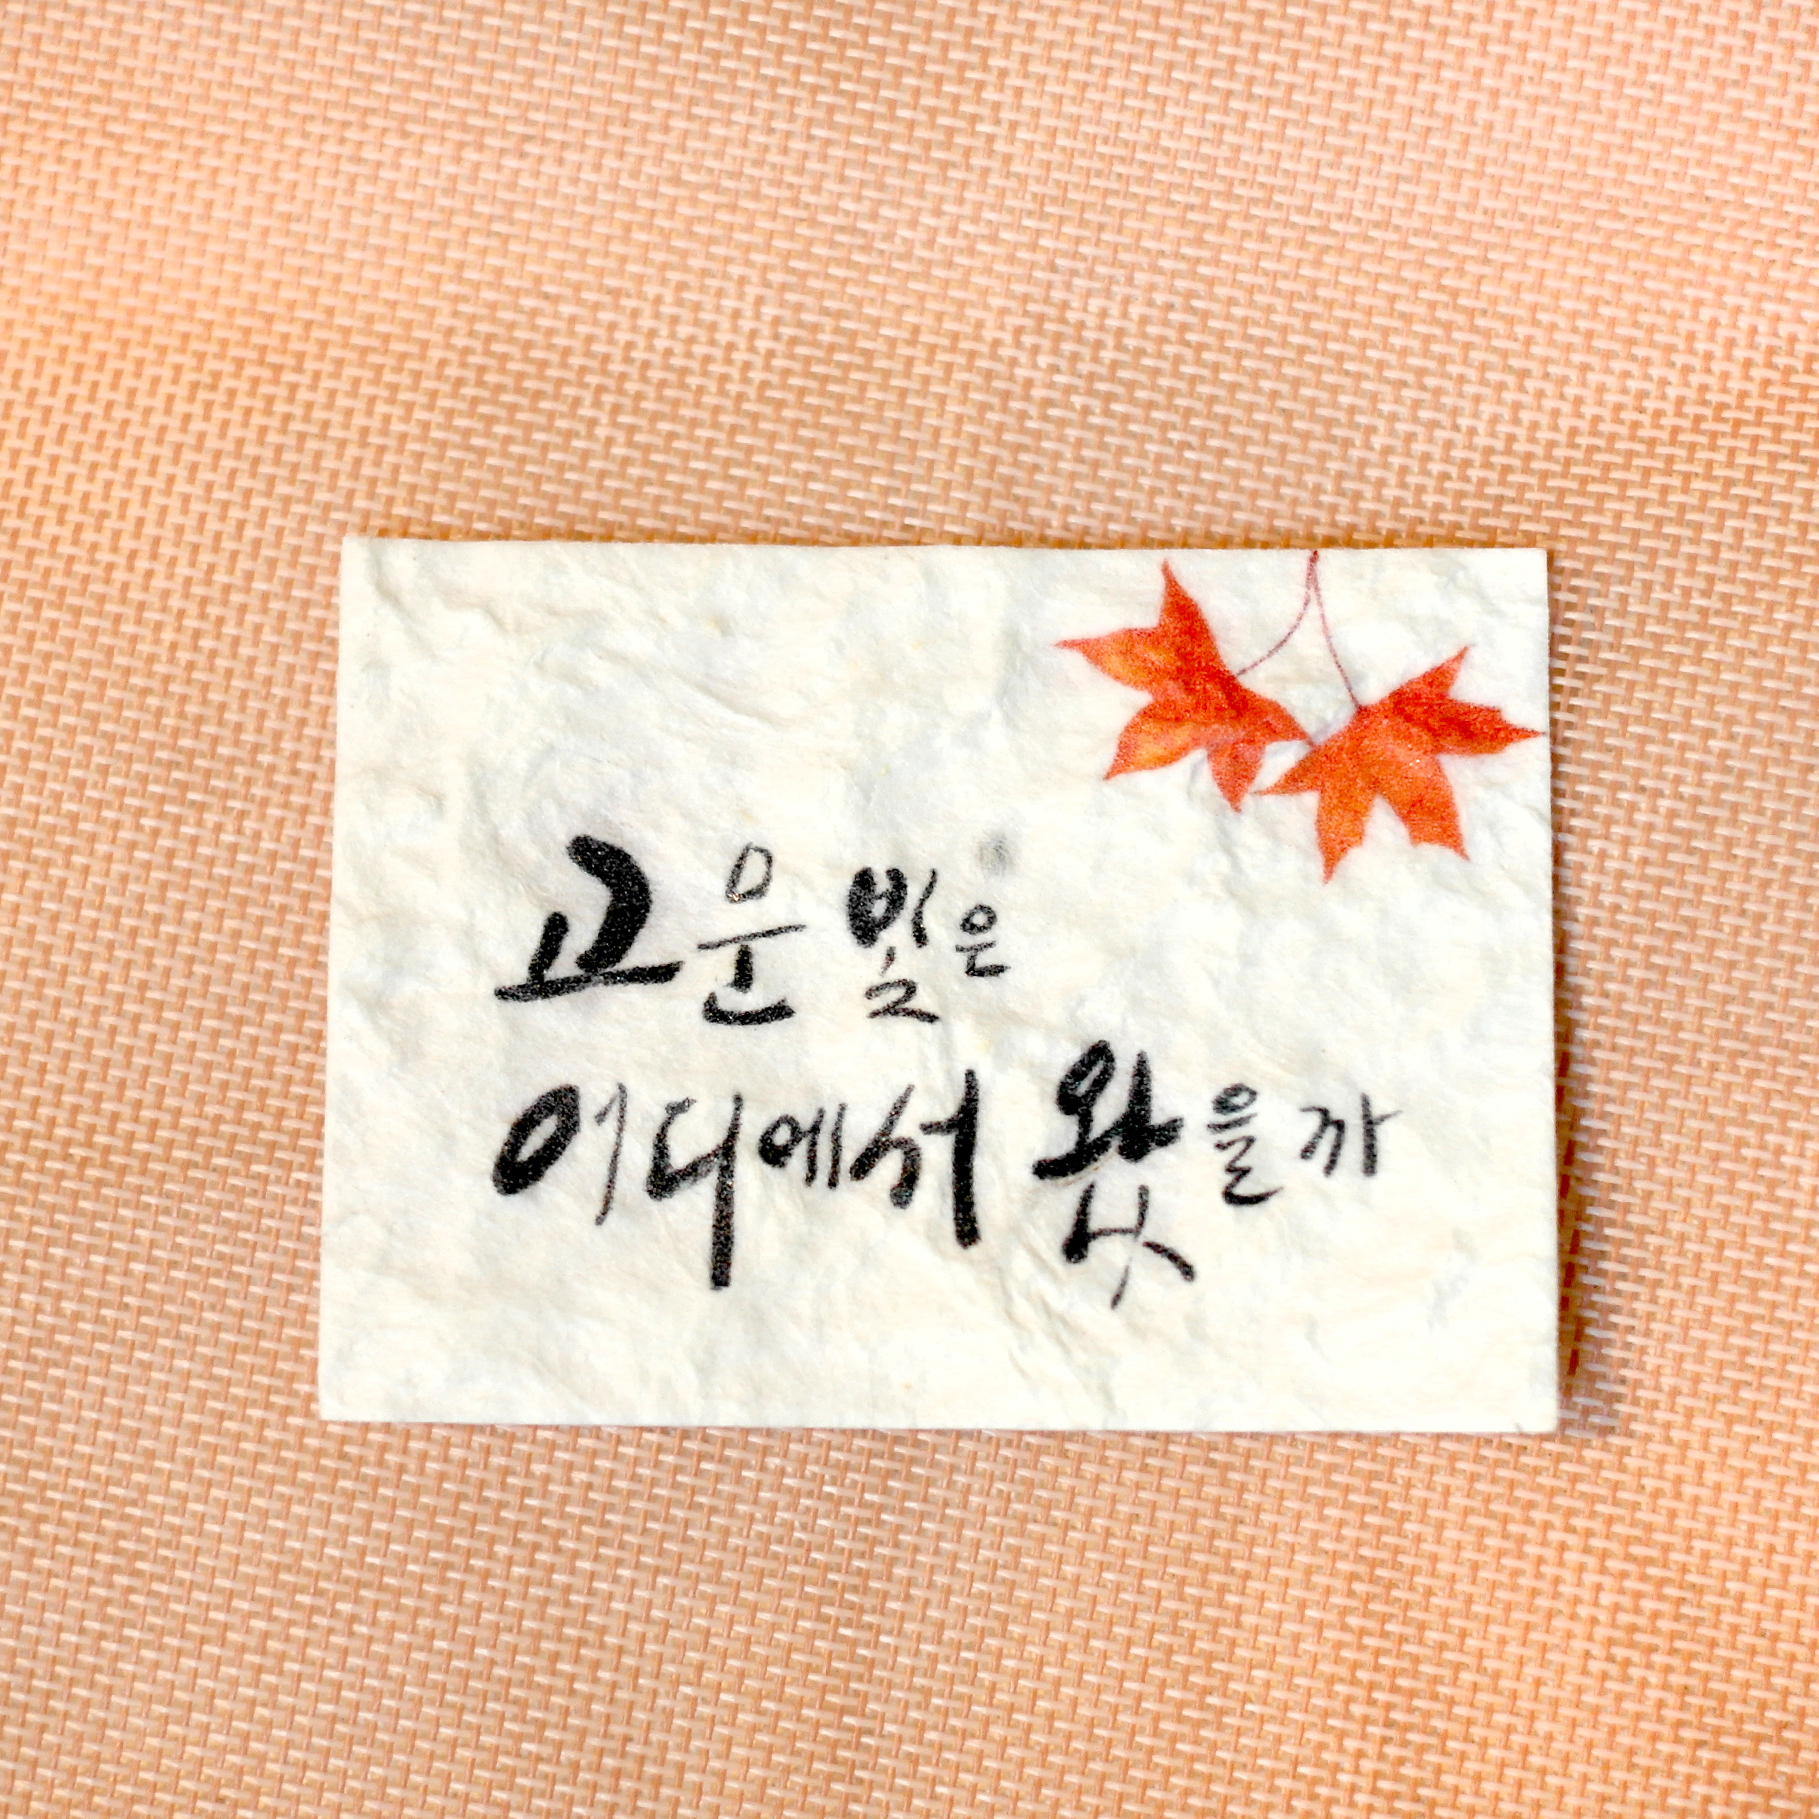 고운 빛은
어디에서 왔을까